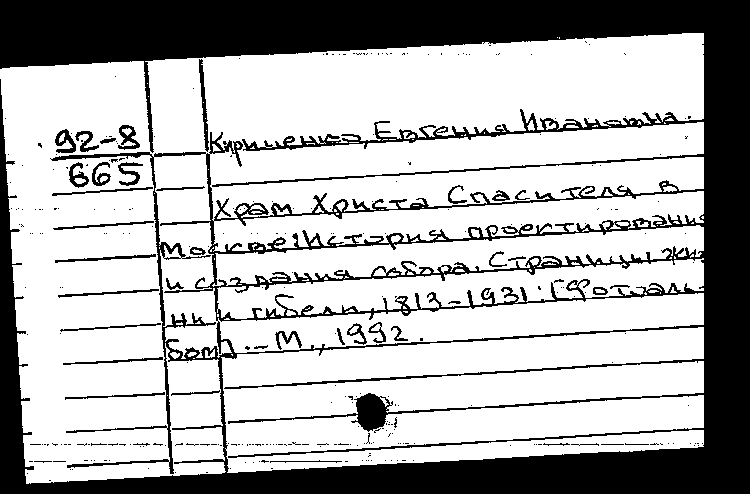 92-8
665
Кириченко, Евгения Ивановна.
Храм Христа Спасителя в
Москве: История проектирования
и создания собора. Страницы жиз
ни и гибели, 1813-1931: [Фотоаль-
бом]. - М., 1992.